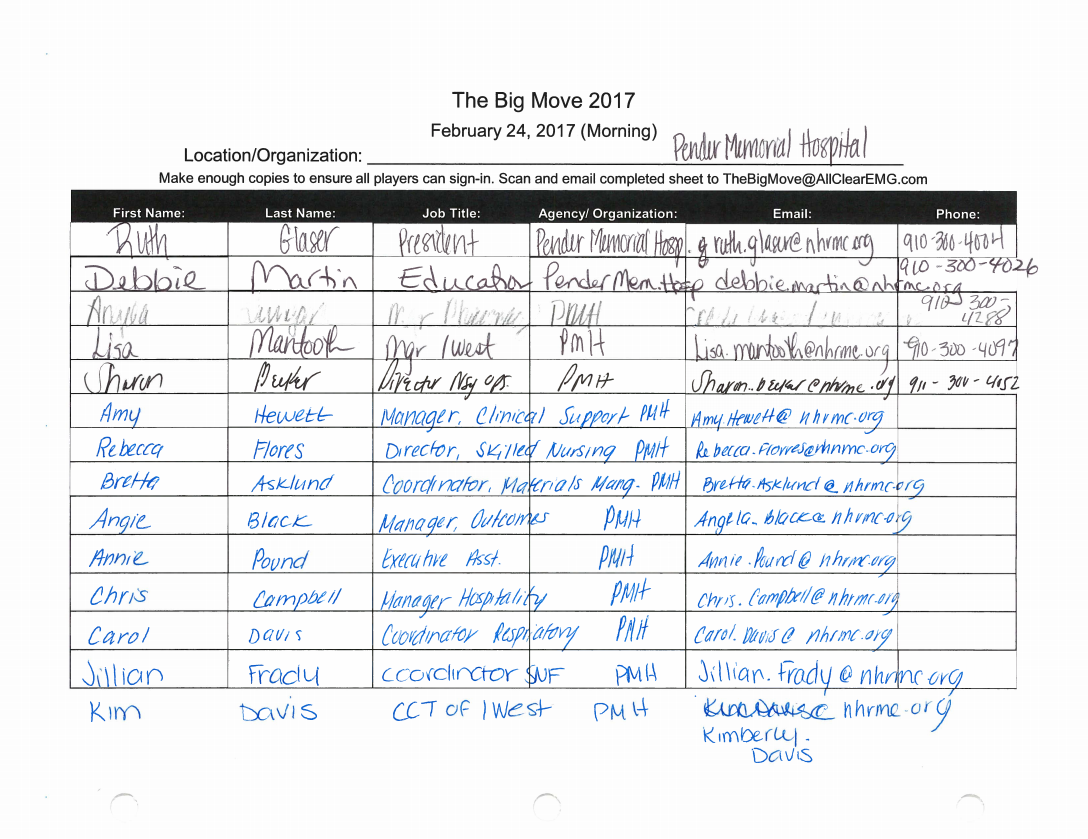 The Big Move 2017
February 24, 2017 (Morning)
Location/Organization: Pender Memorial Hospital
Make enough copies to ensure all players can sign-in. Scan and email completed sheet to TheBigMove@AllClearEMG.com
First Name: Last Name: Job Title: Agency/ Organization: Email: Phone:
Ruth Glaser President Pender Memorial Hosp. ruth.glaser@nhrmc.org 910-300-4004
Debbie Martin Educator Pender Mem. Hosp debbie.martin@nhrmc.org 910-300-4026
PMH 910-300-4288
Lisa Mantooth Mgr 1west PMH Lisa.mantooth@nhrmc.org 910-300-4097
Sharon Becker Director Nsg Ops. PMH Sharon.becker@nhrmc.org 911-300-4052
Amy Hewett Manager, Clinical Support PMH Amy.Hewett@nhrmc.org
Rebecca Flores Director, Skilled Nursing PMH
Bretta Asklund Coordinator, Materials Mang. PMH Bretta.Asklund@nhrmc.org
Angie Black Manager, Outcomes PMH Angela.black@nhrmc.org
Annie Pound Executive Asst. PMH Annie.Pound@nhrmc.org
Chris Campbell Manager Hospitality PMH Chris.Campbell@nhrmc.org
Carol Davis Coordinator Respiratory PMH Carol.Davis@nhrmc.org
Jillian Frady coordinator SNF PMH Jillian.Frady@nhrmc.org
Kim Davis CCT OF 1West PMH nhrmc.org
Kimberly.
Davis